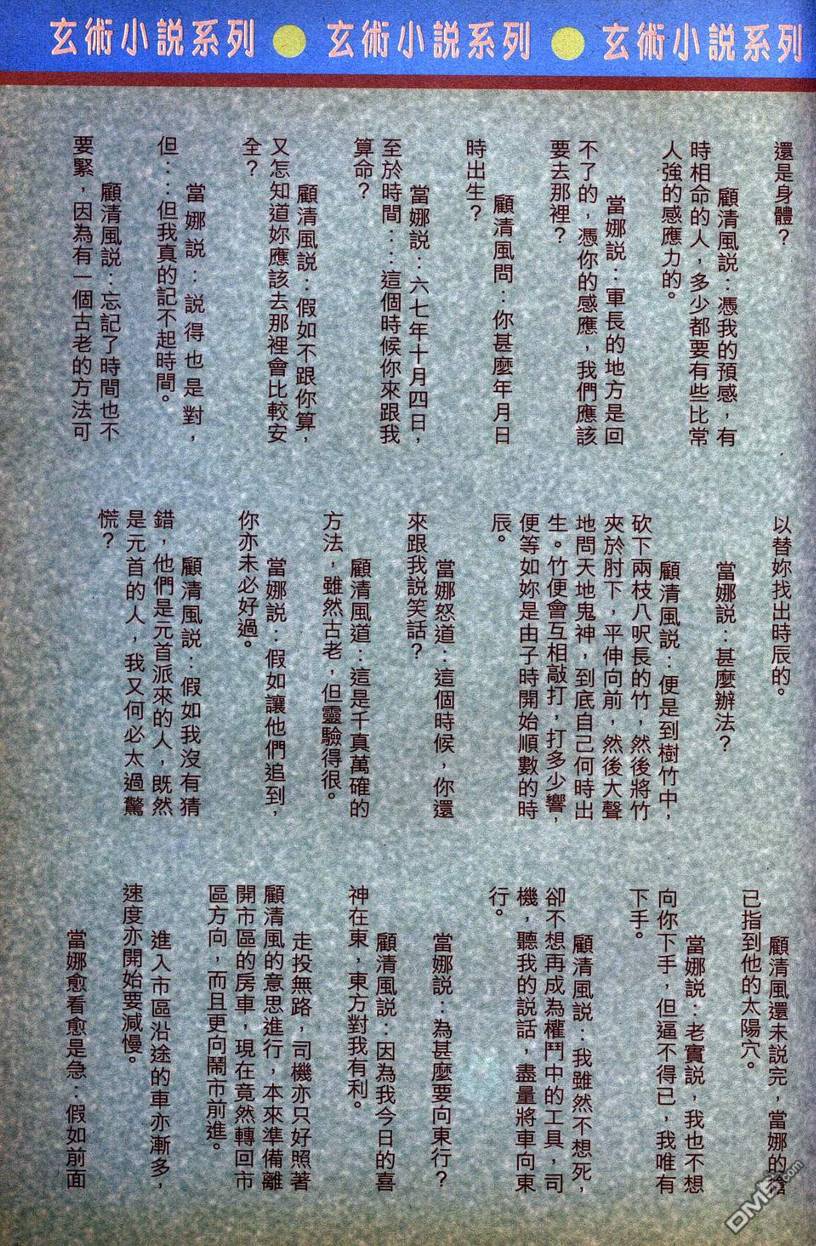 玄術小說系列 ● 玄術小說系列 ● 玄術小說系列
還是身體？
顧清風說：憑我的預感，有
時相命的人，多少都要有些比常
人強的感應力的。
當娜說：軍長的地方是回
不了的，憑你的感應，我們應該
要去那裡？
顧清風問：你甚麼年月日
時出生？
當娜說：六七年十月四日，
至於時間：：這個時候你來跟我
算命？
顧清風說：假如不跟你算，
又怎知道妳應該去那裡會比較安
全？
當娜說：說得也是對，
但：：但我真的記不起時間。
顧清風說：忘記了時間也不
要緊，因為有一個古老的方法可
以替妳找出時辰的。
當娜說：甚麼辦法？
顧清風說：便是到樹竹中，
砍下兩枝八呎長的竹，然後將竹
夾於肘下，平伸向前，然後大聲
地問天地鬼神，到底自己何時出
生。竹便會互相敲打，打多少響，
便等如妳是由子時開始順數的時
辰。
當娜怒道：這個時候，你還
來跟我說笑話？
顧清風道：這是千真萬確的
方法，雖然古老，但靈驗得很。
當娜說：假如讓他們追到，
你亦未必好過。
顧清風說：假如我沒有猜
錯，他們是元首派來的人，既然
是元首的人，我又何必太過驚
慌？
顧清風還未說完，當娜的
已指到他的太陽穴。
當娜說：老實說，我也不想
向你下手，但逼不得已，我唯有
下手。
顧清風說：我雖然不想死，
卻不想再成為權鬥中的工具，司
機，聽我的說話，盡量將車向東
行。
當娜說：為甚麼要向東行？
顧清風說：因為我今日的喜
神在東，東方對我有利。
走投無路，司機亦只好照著
顧清風的意思進行，本來準備離
開市區的房車，現在竟然轉回市
區方向，而且更向鬧市前進。
進入市區沿途的車亦漸多，
速度亦開始要減慢。
當娜愈看愈是急：假如前面